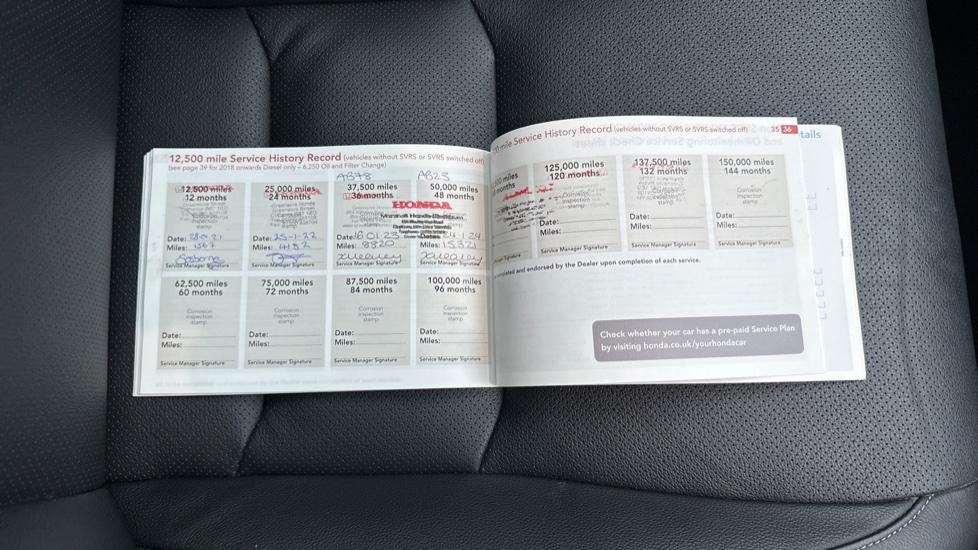 12,500 mile Service History Record (vehicles without SVRS or SVRS switched off)
(see page 39 for 2018 onwards Diesel only – 6,250 Oil and Filter Change)
AB78
AB23
12,500 miles
12 months
Date:
Miles:
Service Manager Signature
25,000 miles
24 months
Date: 25-1-22
Miles:
Service Manager Signature
37,500 miles
36 months
Date: 16.01.23
Miles: 8820
Service Manager Signature
50,000 miles
48 months
HONDA
Date: 24.1.24
Miles: 15321
Service Manager Signature
62,500 miles
60 months
Corrosion
inspection
stamp
Date:
Miles:
Service Manager Signature
75,000 miles
72 months
Corrosion
inspection
stamp
Date:
Miles:
Service Manager Signature
87,500 miles
84 months
Corrosion
inspection
stamp
Date:
Miles:
Service Manager Signature
100,000 miles
96 months
Corrosion
inspection
stamp
Date:
Miles:
Service Manager Signature
mile Service History Record (vehicles without SVRS or SVRS switched off)
35 36
tails
months
Signature
125,000 miles
120 months
Corrosion
inspection
stamp
Date:
Miles:
Service Manager Signature
137,500 miles
132 months
Date:
Miles:
Service Manager Signature
150,000 miles
144 months
Corrosion
inspection
stamp
Date:
Miles:
Service Manager Signature
and endorsed by the Dealer upon completion of each service.
Check whether your car has a pre-paid Service Plan
by visiting honda.co.uk/yourhondacar